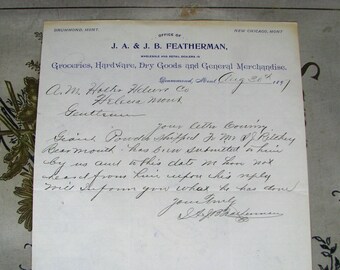 DRUMMOND, MONT.
NEW CHICAGO, MONT.
OFFICE OF
J. A. & J. B. FEATHERMAN,
WHOLESALE AND RETAIL DEALERS IN
Groceries, Hardware, Dry Goods and General Merchandise.
Drummond, Mont. Aug 30th 1889
A. M. Holter Hdware Co
Helena Mont
Gentlemen
Your letter
Giant Powder Shipped to Mr
has been submitted to him
by us and to this date we have not
heard from him upon his reply
will inform you what he has done
Yours Truly
J A & J B Featherman